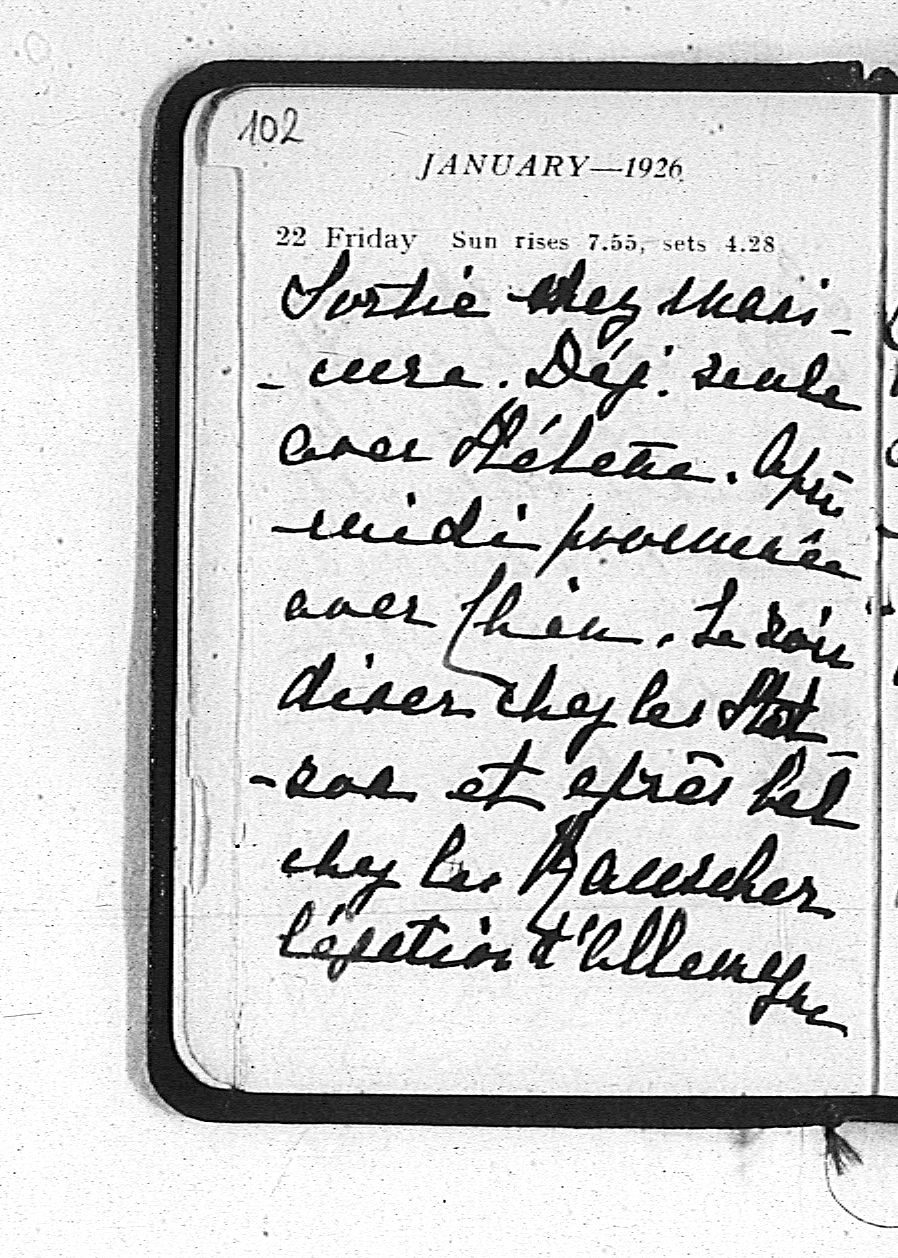 102
JANUARY—1926
22 Friday Sun rises 7.55, sets 4.28
Sortie chez mani-
-cure. Déj. seule
avec Hélène. Après
-midi promenée
avec chien. Le soir
diner chez les
-son et après bal
chez les Rauscher
légation d'Allemagne